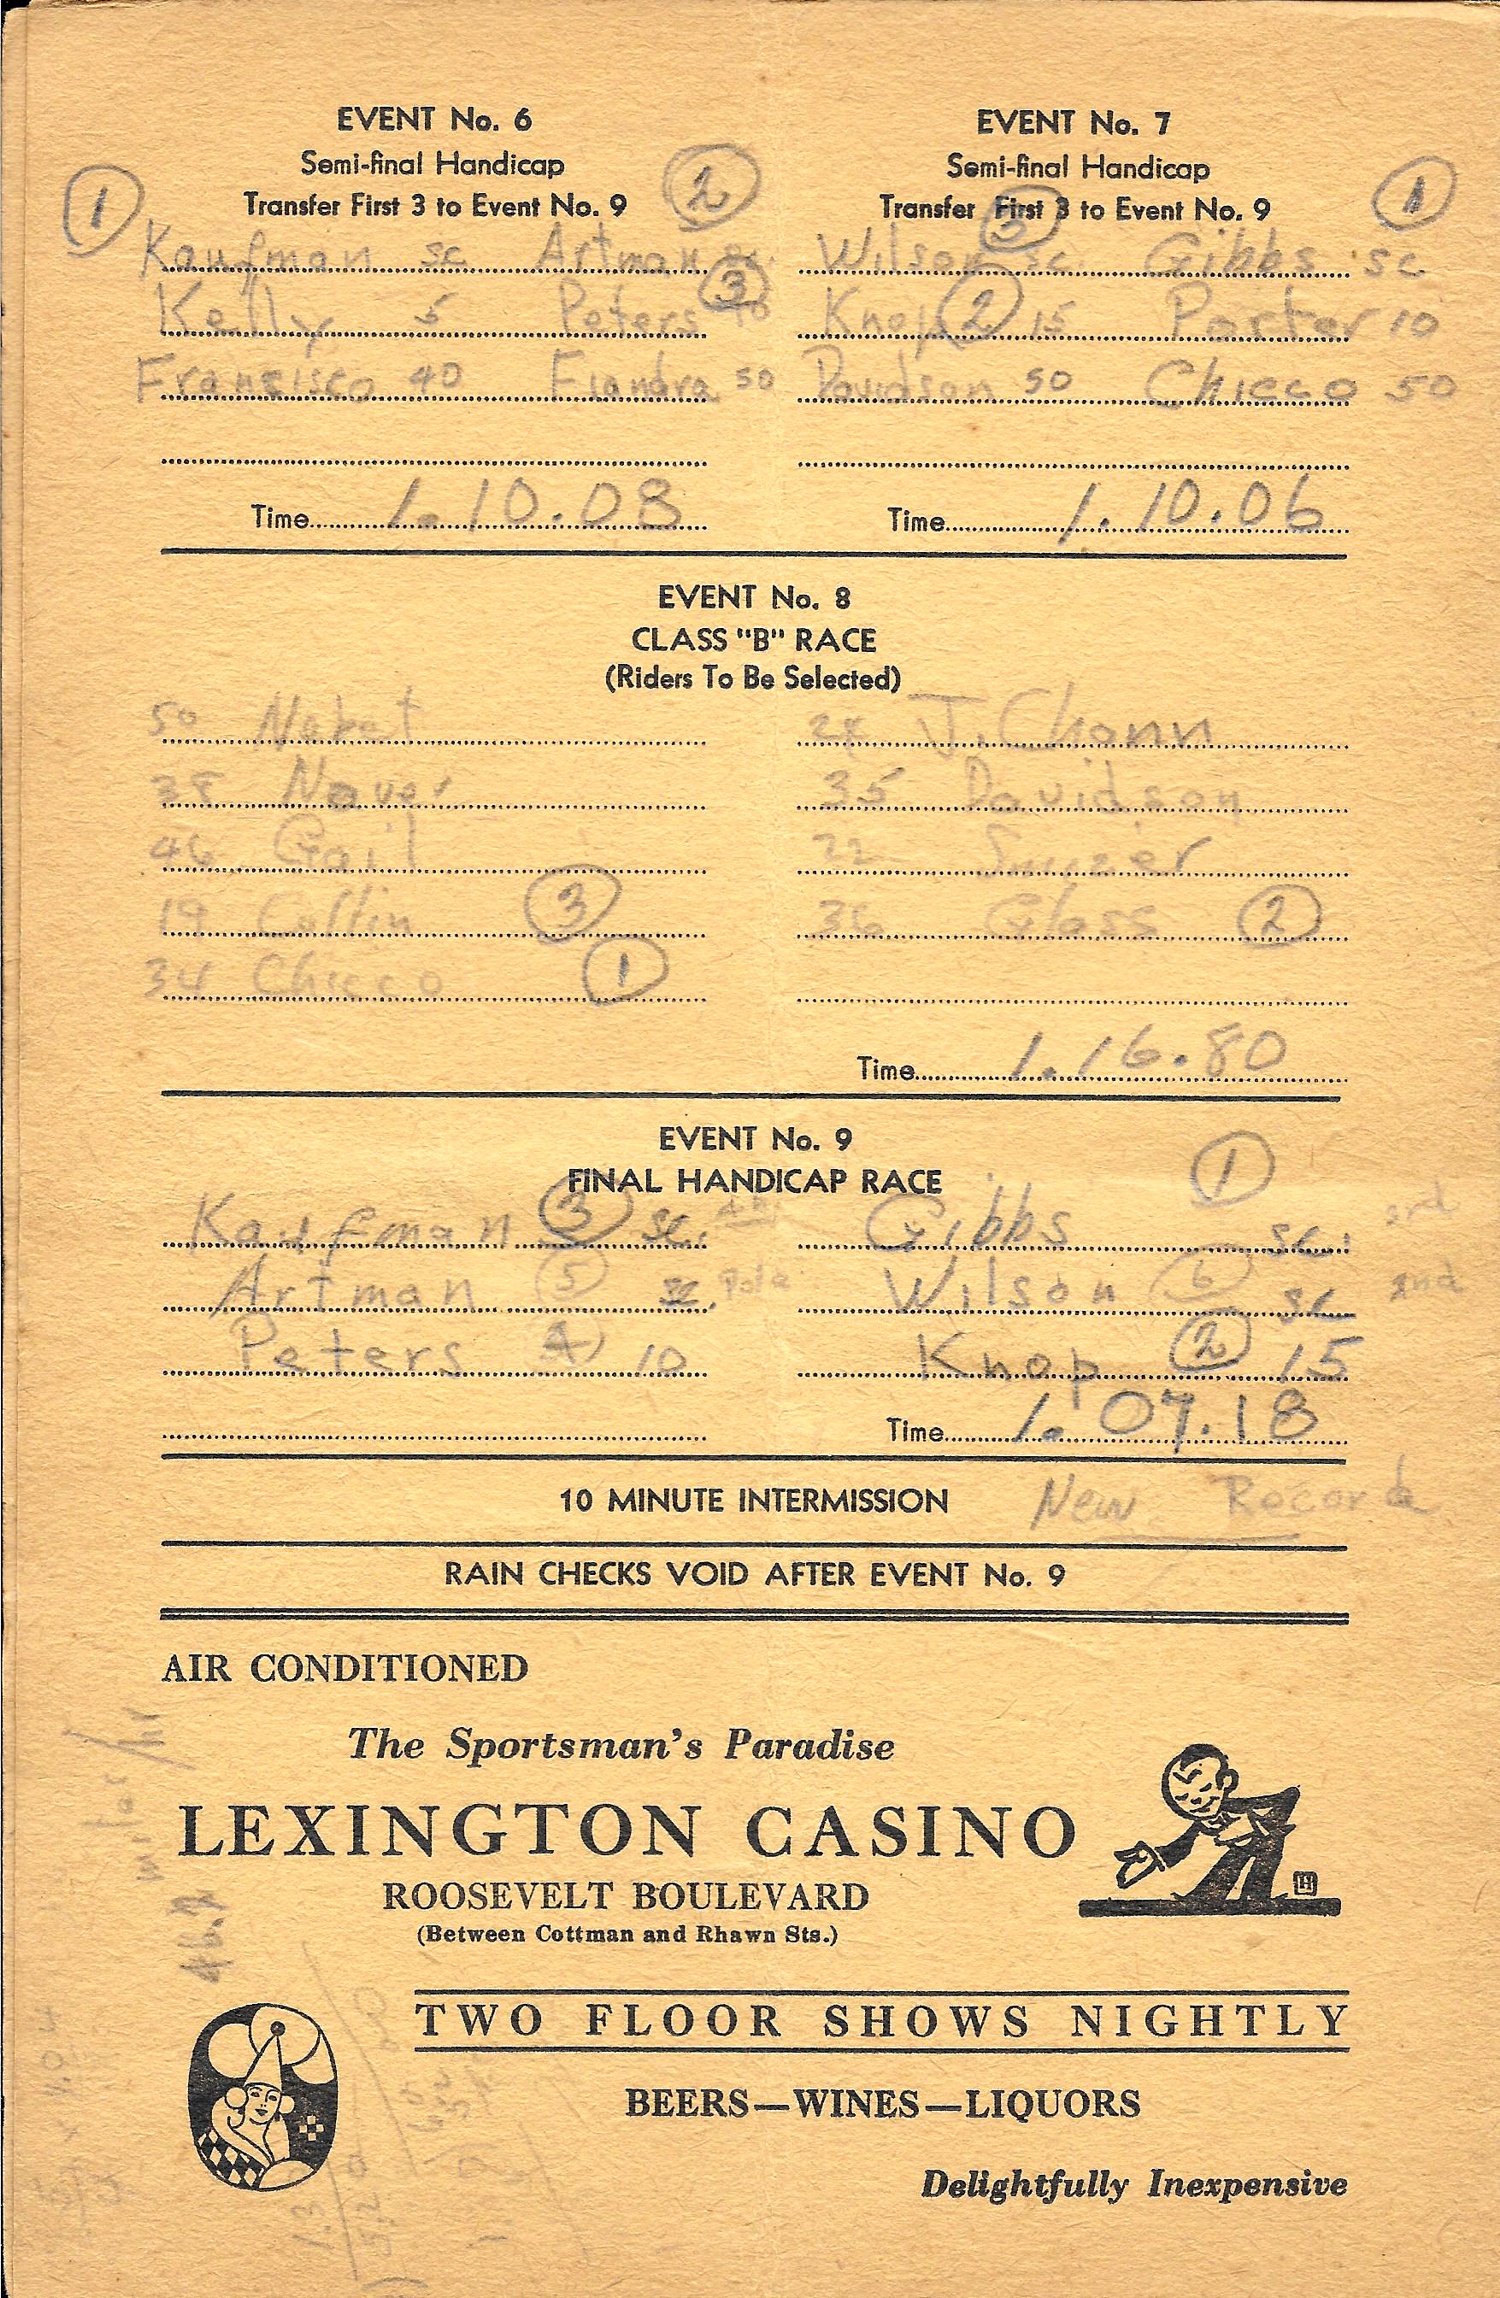 EVENT No. 6
Semi-final Handicap
Transfer First 3 to Event No. 9
1 2
Kaufman sc Artman sc.
Kelly 5 Peters 3 10
Francisco 40 Fiandra 50
Time 1.10.08
EVENT No. 7
Semi-final Handicap
Transfer First 3 to Event No. 9
3 1
Wilson sc. Gibbs sc
Knop 2 15 Porter 10
Davidson 50 Chicco 50
Time 1.10.06
EVENT No. 8
CLASS "B" RACE
(Riders To Be Selected)
50 24 J. Chann
35 Davidson
46 Gail 22
19 3 36 Glass 2
34 Chicco 1
Time 1.16.80
EVENT No. 9
FINAL HANDICAP RACE
1
Kaufman 3 sc. 4th Gibbs sc. 3rd
Artman 5 sc. Pole Wilson 6 sc 2nd
Peters 4 10 Knop 2 15
Time 1.07.18
10 MINUTE INTERMISSION New Record
RAIN CHECKS VOID AFTER EVENT No. 9
AIR CONDITIONED
The Sportsman's Paradise
LEXINGTON CASINO
ROOSEVELT BOULEVARD
(Between Cottman and Rhawn Sts.)
H
TWO FLOOR SHOWS NIGHTLY
BEERS—WINES—LIQUORS
Delightfully Inexpensive
miles/hr